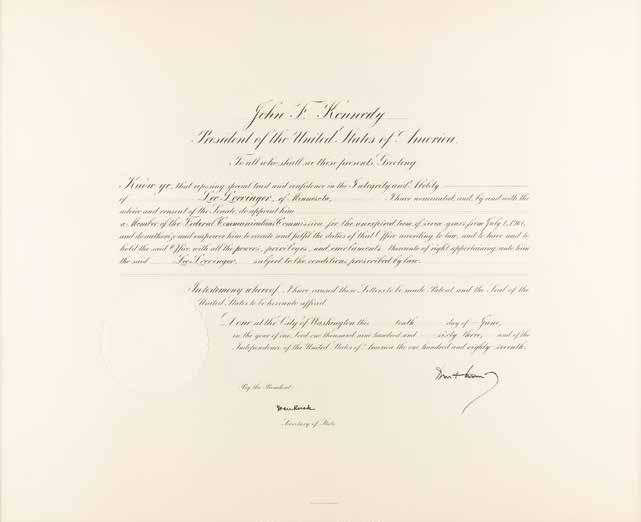 John F. Kennedy
President of the United States of America.
To all who shall see these presents, Greeting:
Know ye, that reposing special trust and confidence in the Integrity and Ability
of Lee Loevinger, of Minnesota, I have nominated, and, by and with the
advice and consent of the Senate, do appoint him
a Member of the Federal Communications Commission for the unexpired term of seven years from July 1, 1961,
and do authorize and empower him to execute and fulfil the duties of that Office according to law, and to have and to
hold the said Office, with all the powers, privileges, and emoluments thereunto of right appertaining, unto him
the said Lee Loevinger, subject to the conditions prescribed by law.
In testimony whereof, I have caused these Letters to be made Patent, and the Seal of the
United States to be hereunto affixed.
Done at the City of Washington this tenth day of June,
in the year of our Lord one thousand nine hundred and sixty three, and of the
Independence of the United States of America the one hundred and eighty seventh.
By the President:
Dean Rusk
Secretary of State.